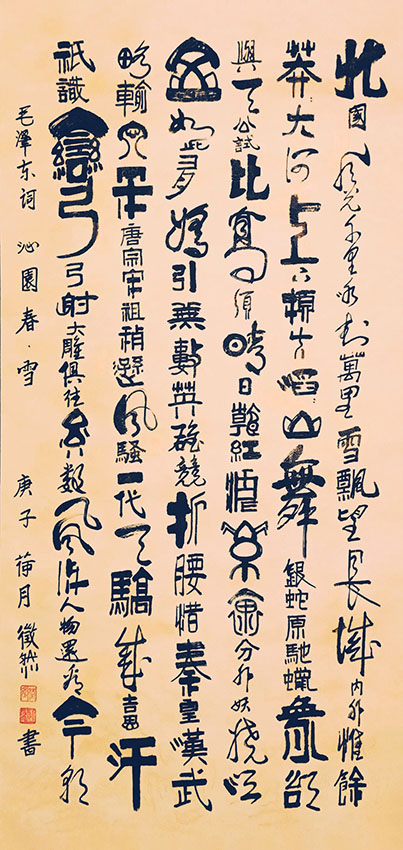 北國風光千里冰封萬里雪飄望長城內外惟餘
莽莽大河上下頓失滔滔山舞銀蛇原馳蠟象欲
與天公試比高須晴日看紅裝素裹分外妖嬈江
山如此多嬌引無數英雄競折腰惜秦皇漢武
略輸文采唐宗宋祖稍遜風騷一代天驕成吉思汗
祇識彎弓射大雕俱往矣數風流人物還看今朝
毛澤东詞 沁園春·雪 庚子荷月 書